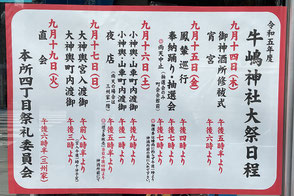 令和五年度
牛嶋神社大祭日程
九月十四日(木)
御神酒所修祓式 午後五時半より
宵宮 午後六時より
九月十五日(金)
鳳輦巡行
※雨天中止
奉納踊り・抽選会 午後六時より
九月十六日(土)
小神輿・山車町内渡御 午後一時より
小神輿・山車町内渡御 午後七時より
夜店 午後五時より
九月十七日(日)
大神輿宮入渡御 午前八時半より
大神輿町内渡御 午後二時より
九月十九日(火)
直会 午後七時半(三州家)
本所四丁目祭礼委員会